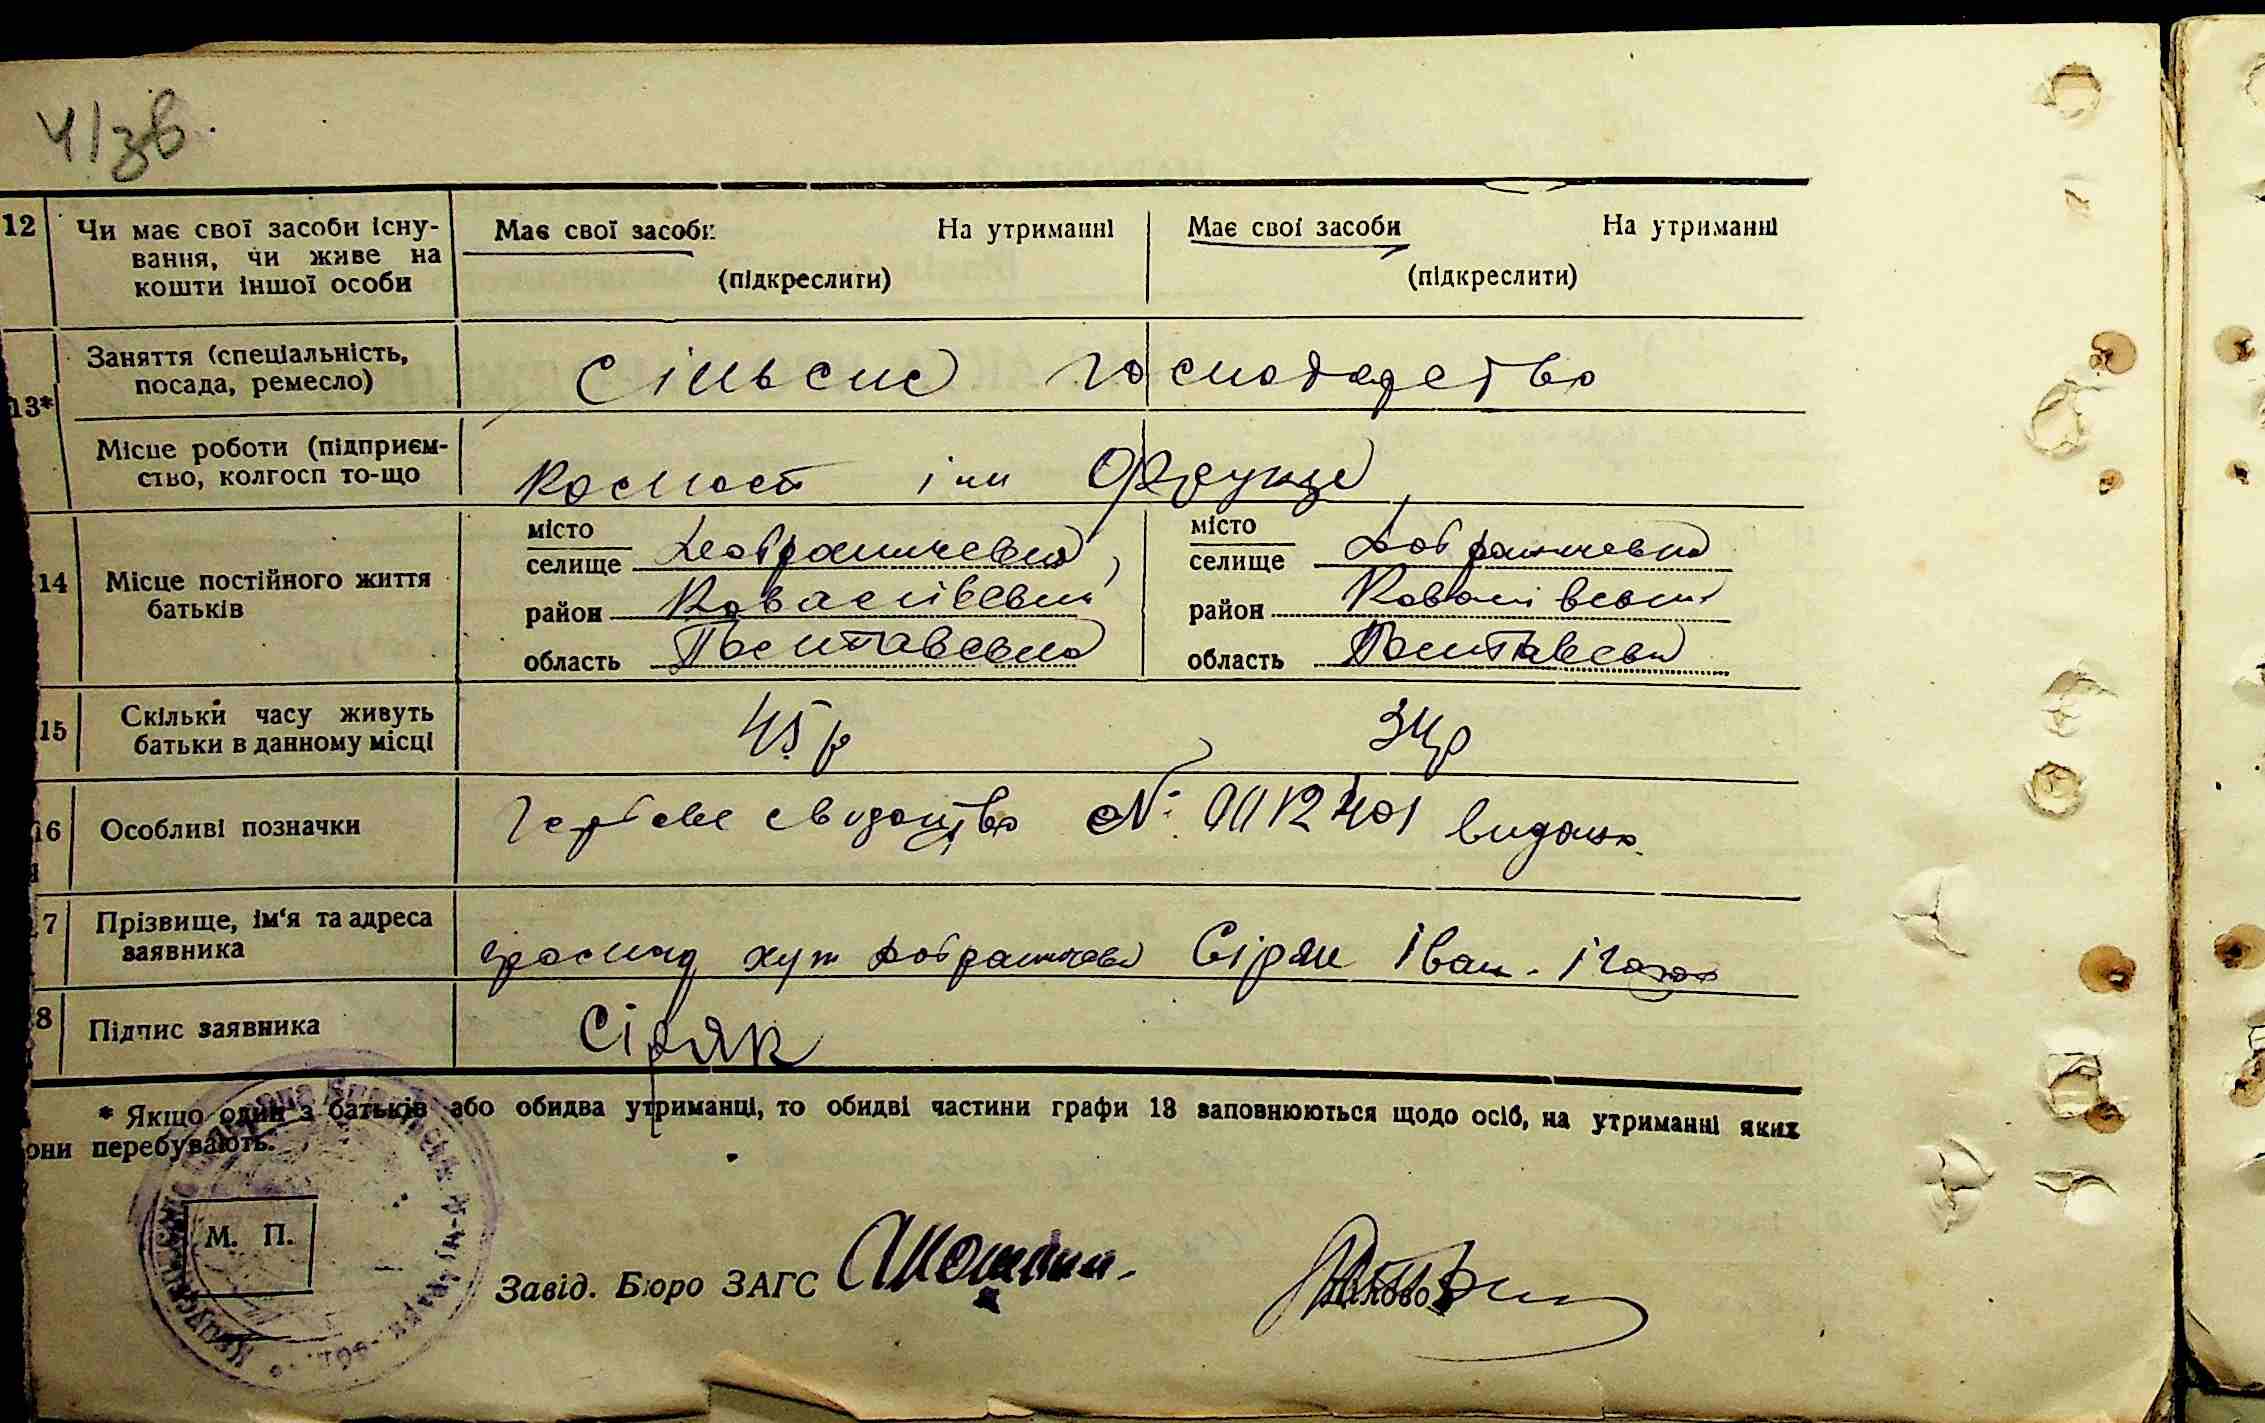 ч/зв.
12 Чи має свої засоби існу- Має свої засоби На утриманні Має свої засоби На утриманні
вання, чи живе на
кошти іншої особи (підкреслити) (підкреслити)
Заняття (спеціальність,
посада, ремесло) Сільське господарство
13*
Місце роботи (підприєм-
ство, колгосп то-що колгосп ім Фрунзе
місто місто
селище Добраничевка селище Добраничевка
14 Місце постійного життя
батьків район Ковалівський район Ковалівський
область Полтавська область Полтавська
15 Скільки часу живуть
батьки в данному місці 45 р 34р
16 Особливі позначки Гербове свидоцтво № видано
7 Прізвище, ім'я та адреса
заявника хут Добраничевка Сіряк Іван
8 Підпис заявника Сіряк
* Якщо один з батьків або обидва утриманці, то обидві частини графи 13 заповнюються щодо осіб, на утриманні яких
они перебувають.
М. П.
Завід. Бюро ЗАГС